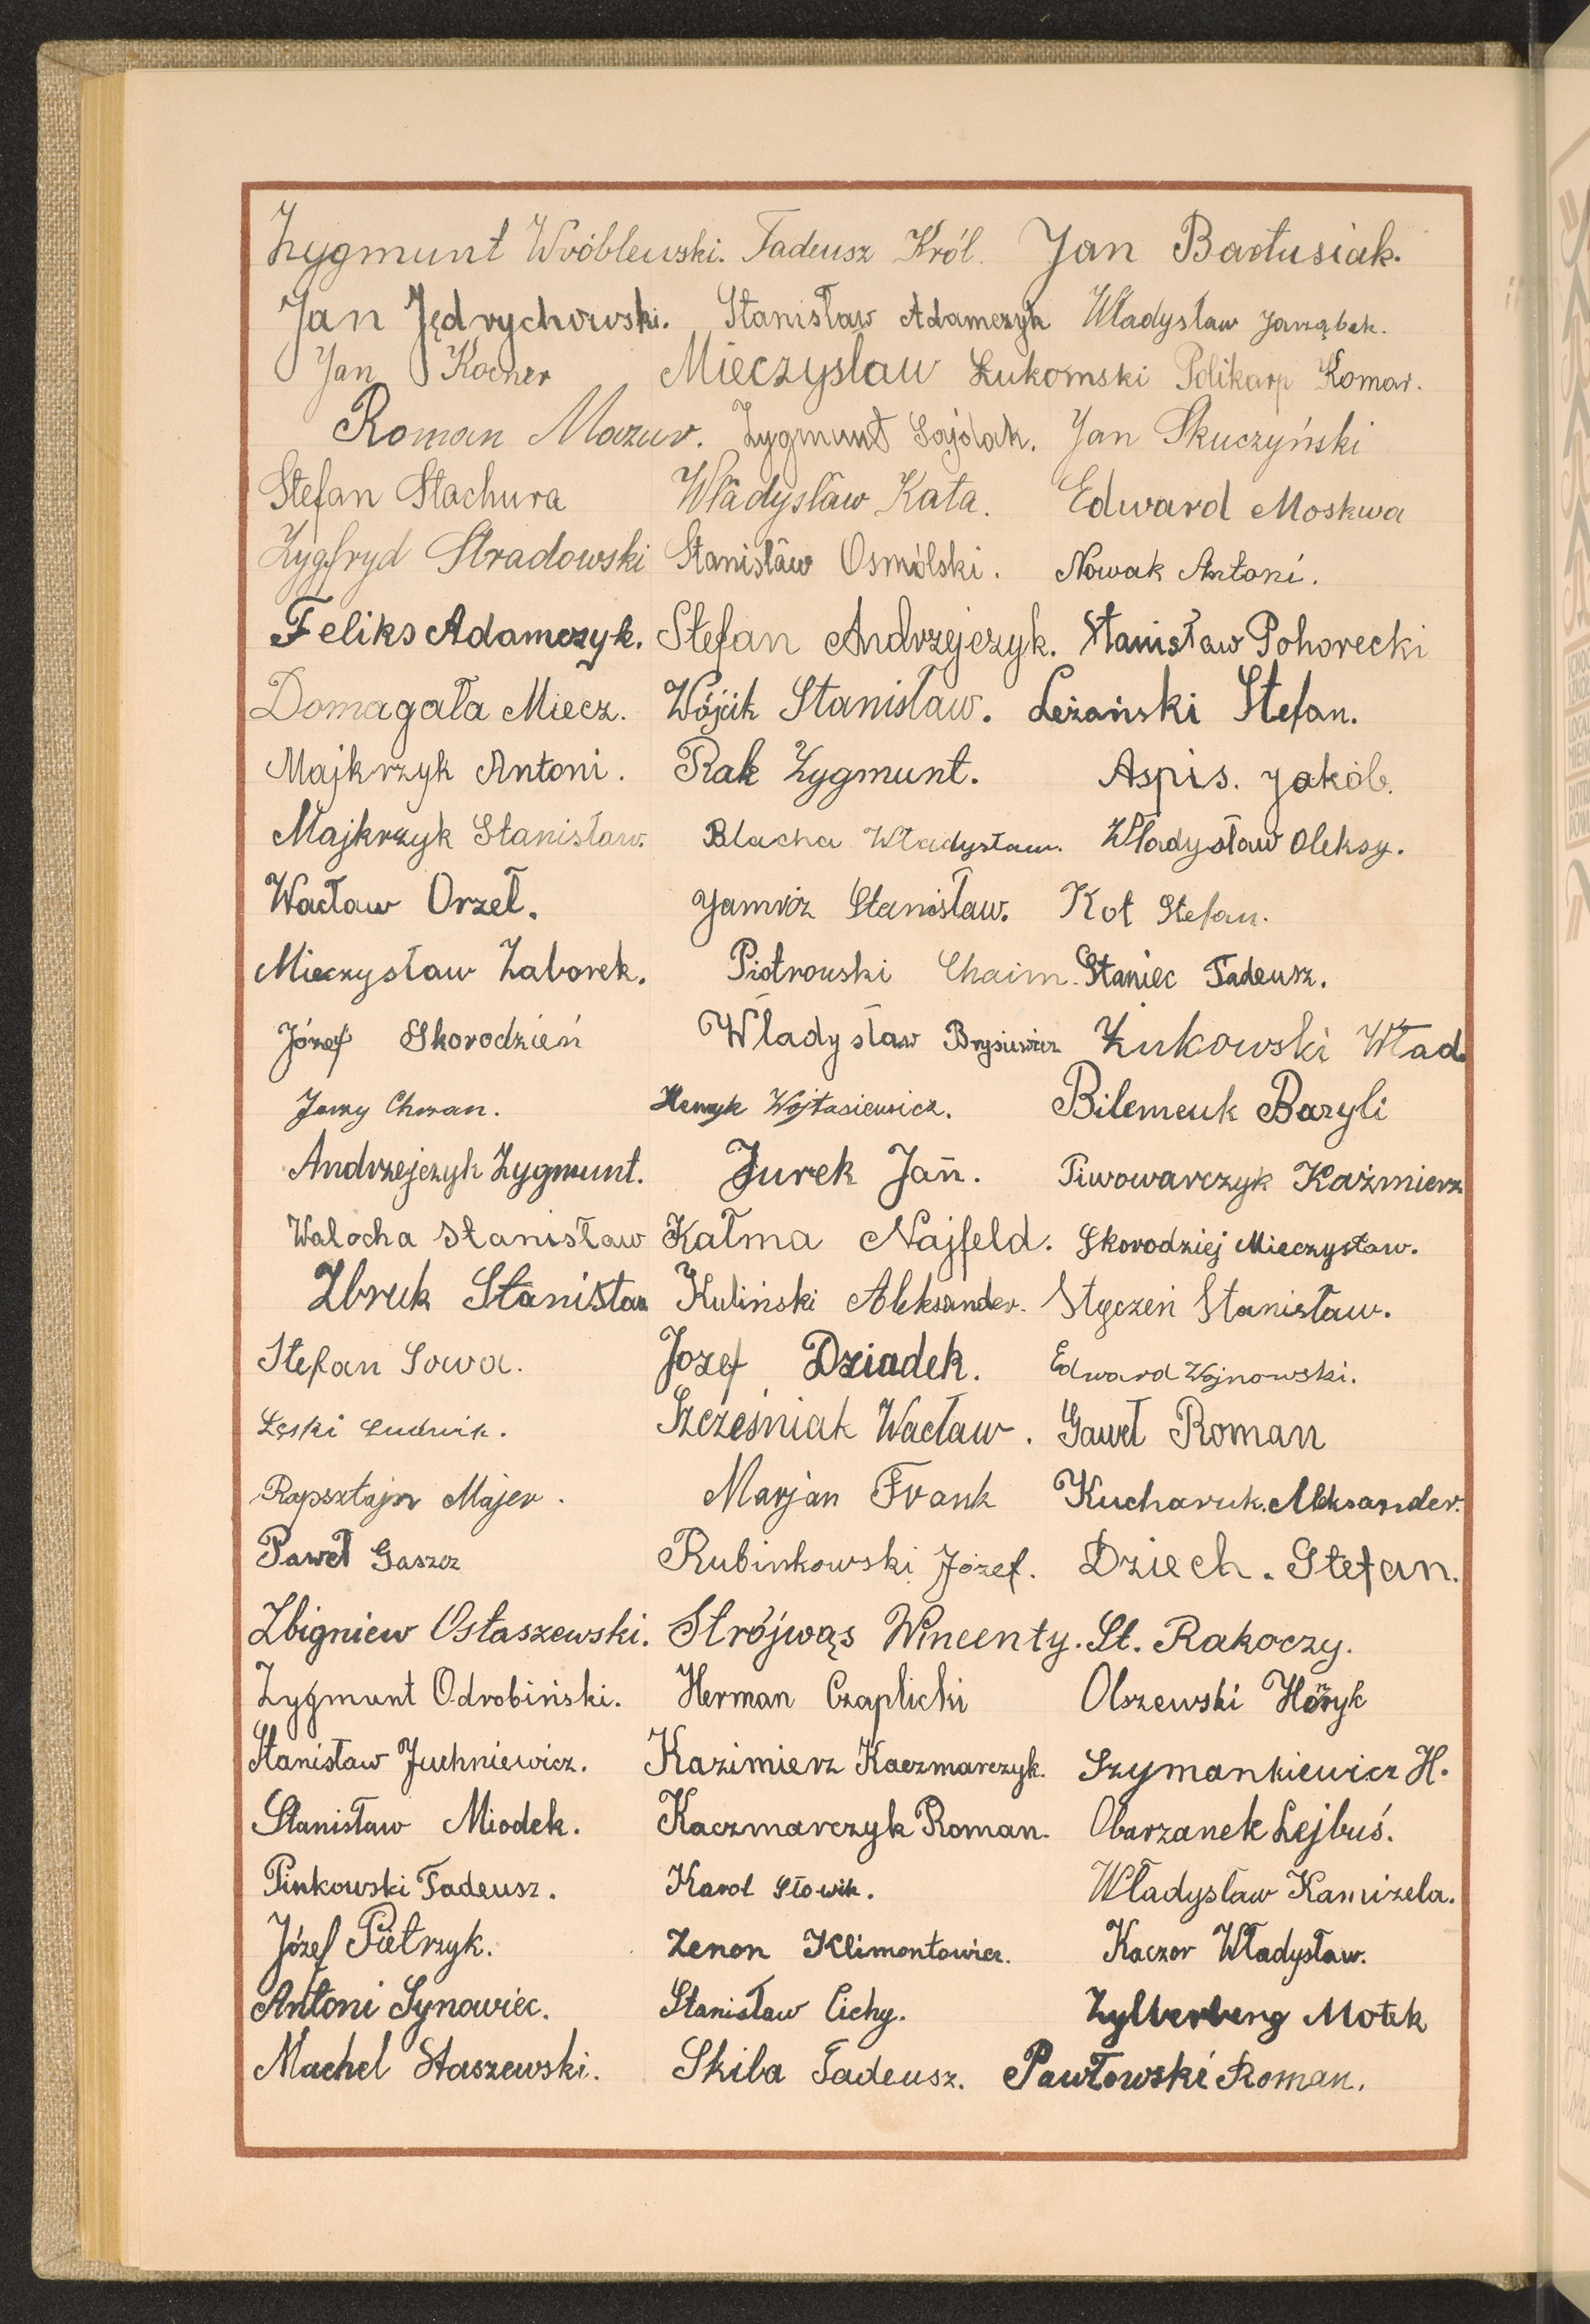 Zygmunt Wróblewski. Tadeusz Król. Jan Bartusiak.
Jan Jędrychowski. Stanisław Adamczyk Władysław Jarząbek.
Jan Kocner Mieczysław Łukomski Polikarp Komar.
Roman Mazur. Zygmunt Gajdak. Jan Skuczyński
Stefan Stachura Władysław Kata. Edward Moskwa
Zygfryd Stradowski Stanisław Osmólski. Nowak Antoni.
Feliks Adamczyk. Stefan Andrzejczyk. Stanisław Pohorecki
Domagała Miecz. Wójcik Stanisław. Leżański Stefan.
Majkrzyk Antoni. Rak Zygmunt. Aspis. Jakób.
Majkrzyk Stanisław. Blacha Władysław. Władysław Oleksy.
Wacław Orzeł. Jamróz Stanisław. Kot Stefan.
Mieczysław Zaborek. Piotrowski Chaim. Staniec Tadeusz.
Józef Skorodzień Władysław Brysiewicz Żukowski Wład.
Jerzy Chrzan. Henryk Wojtasiewicz. Bilemeuk Bazyli
Andrzejczyk Zygmunt. Jurek Jan. Piwowarczyk Kaźmierz
Walocha Stanisław Kałma Najfeld. Skorodziej Mieczysław.
Zbruk Stanisław Kuliński Aleksander. Styczeń Stanisław.
Stefan Sowa. Jozef Dziadek. Edward Wojnowski.
Łęski Ludwik. Szcześniak Wacław. Gaweł Roman
Rapsztajn Majer. Marjan Frank Kucharuk. Aleksander.
Paweł Gaszcz Rubinkowski Józef. Dziech. Stefan.
Zbigniew Ostaszewski. Strójwąs Wincenty. St. Rakoczy.
Zygmunt Odrobiński. Herman Czaplicki Olszewski Henryk
Stanisław Juchniewicz. Kazimierz Kaczmarczyk. Szymankiewicz H.
Stanisław Miodek. Kaczmarczyk Roman. Obarzanek Lejbuś.
Pinkowski Tadeusz. Karol Słowik. Władysław Kamizela.
Józef Pietrzyk. Zenon Klimontowicz. Kaczor Władysław.
Antoni Synowiec. Stanisław Cichy. Zylberberg Motek
Machel Staszewski. Skiba Tadeusz. Pawłowski Roman.